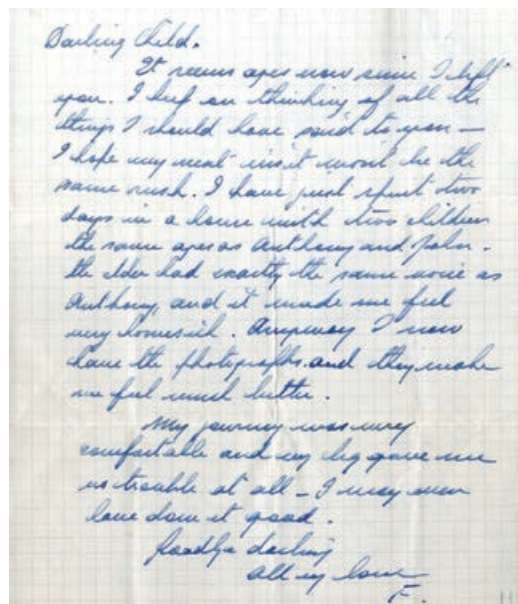 Darling Child.
It seems ages now since I left
you. I keep on thinking of all the
things I should have said to you —
I hope my next visit won't be the
same rush. I have just spent two
days in a house with two children
the same ages as Anthony and John.
the elder had exactly the same voice as
Anthony, and it made me feel
very homesick. Anyway I now
have the photographs. and they make
me feel much better.
My journey was very
comfortable and my leg gave me
no trouble at all — I may even
have done it good.
Goodbye darling
All my love
F.